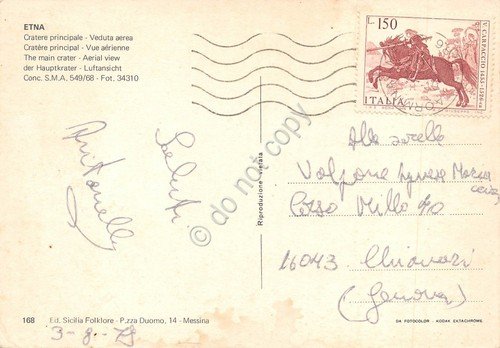 ETNA
Cratere principale - Veduta aerea
Cratère principal - Vue aérienne
The main crater - Aerial view
der Hauptkrater - Luftansicht
Conc. S.M.A. 549/68 - Fot. 34310
L. 150
V. CARPACCIO 1455-1526 ca
ITALIA
Saluti
Antonella
© do not copy
Riproduzione vietata
Alla sorella
Volpone Maria
Corso Millo
16043 Chiavari
(Genova)
168 Ed. Sicilia Folklore - P.zza Duomo, 14 - Messina
DA FOTOCOLOR - KODAK EKTACHROME
3-8-79